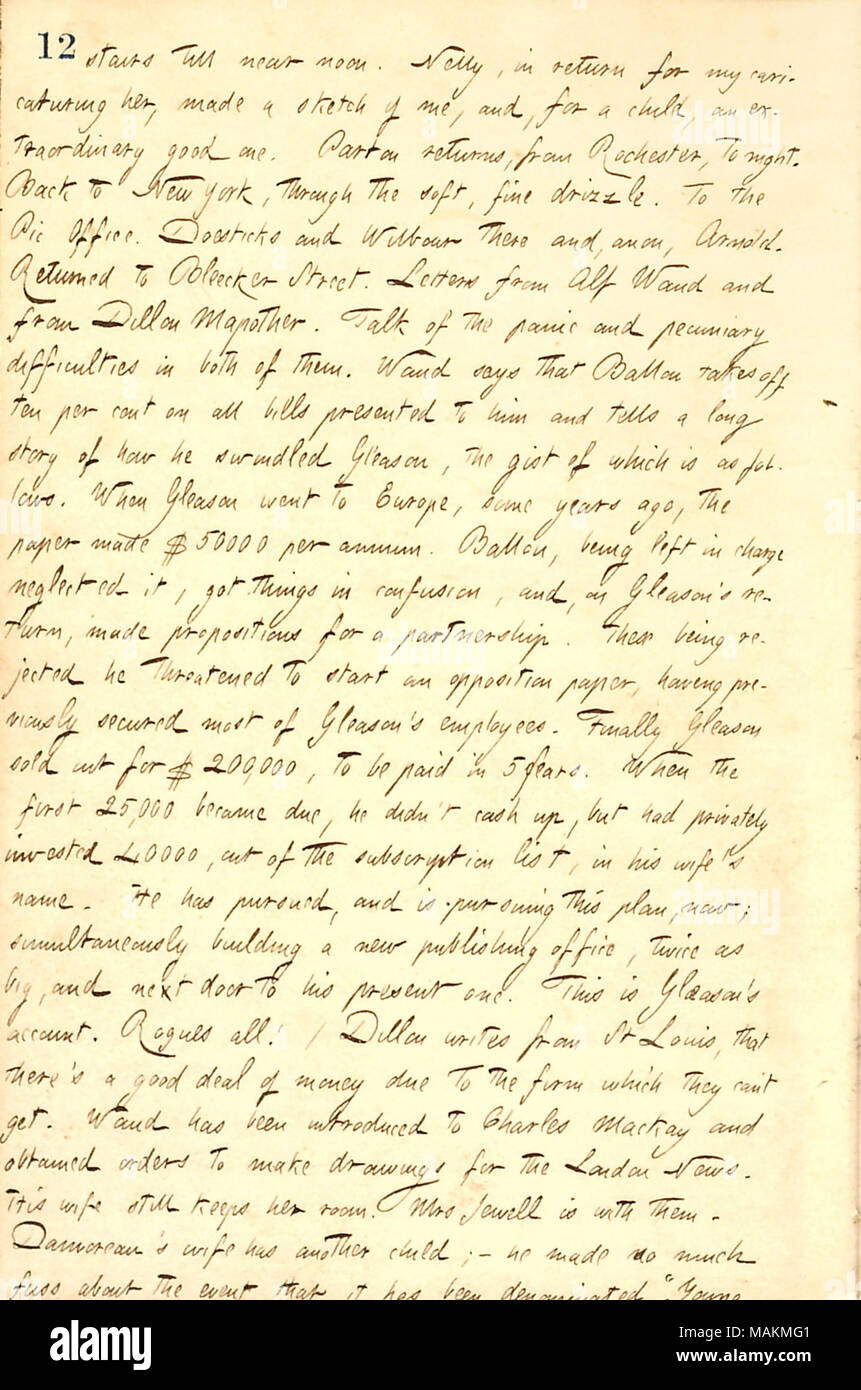 12
stairs till near noon. Nelly, in return for my cari-
caturing her, made a sketch of me, and, for a child, an ex-
traordinary good one. Parton returns, from Rochester, to night.
Back to New York, through the soft, fine drizzle. To the
Pic Office. Doesticks and Wilbour there and, anon, Arnold.
Returned to Bleecker Street. Letters from Alf Waud and
from Dillon Mapother. Talk of the panic and pecuniary
difficulties in both of them. Waud says that Ballou takes off
ten per cent on all bills presented to him and tells a long
story of how he swindled Gleason, the gist of which is as fol-
lows. When Gleason went to Europe, some years ago, the
paper made $50000 per annum. Ballou, being left in charge
neglected it, got things in confusion, and, on Gleason's re-
turn, made propositions for a partnership. These being re-
jected he threatened to start an opposition paper, having pre-
viously secured most of Gleason's employees. Finally Gleason
sold out for $200,000, to be paid in 5 years. When the
first 25,000 became due, he didn't cash up, but had privately
invested 40000, out of the subscription list, in his wife's
name. He has pursued, and is pursuing this plan, now;
simultaneously building a new publishing office, twice as
big, and next door to his present one. This is Gleason's
account. Rogues all! / Dillon writes from St Louis, that
there's a good deal of money due to the firm which they can't
get. Waud has been introduced to Charles Mackay and
obtained orders to make drawings for the London News.
His wife still keeps her room. Mrs Jewell is with them.
Damoreau's wife has another child; - he made so much
fuss about the event that it has been denominated "Young
alamy stock photo
MAKMG1
www.alamy.com